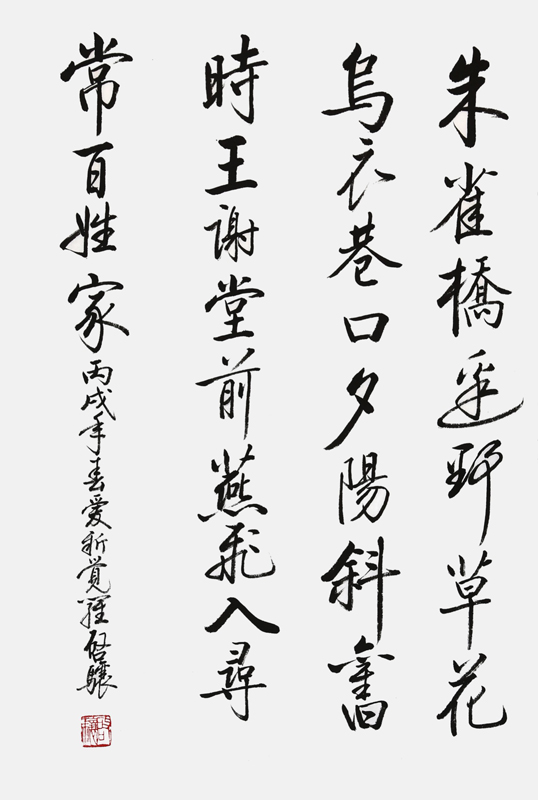 朱雀橋邊野草花
烏衣巷口夕陽斜舊
時王謝堂前燕飛入尋
常百姓家
丙戌年春愛新覺羅启驤